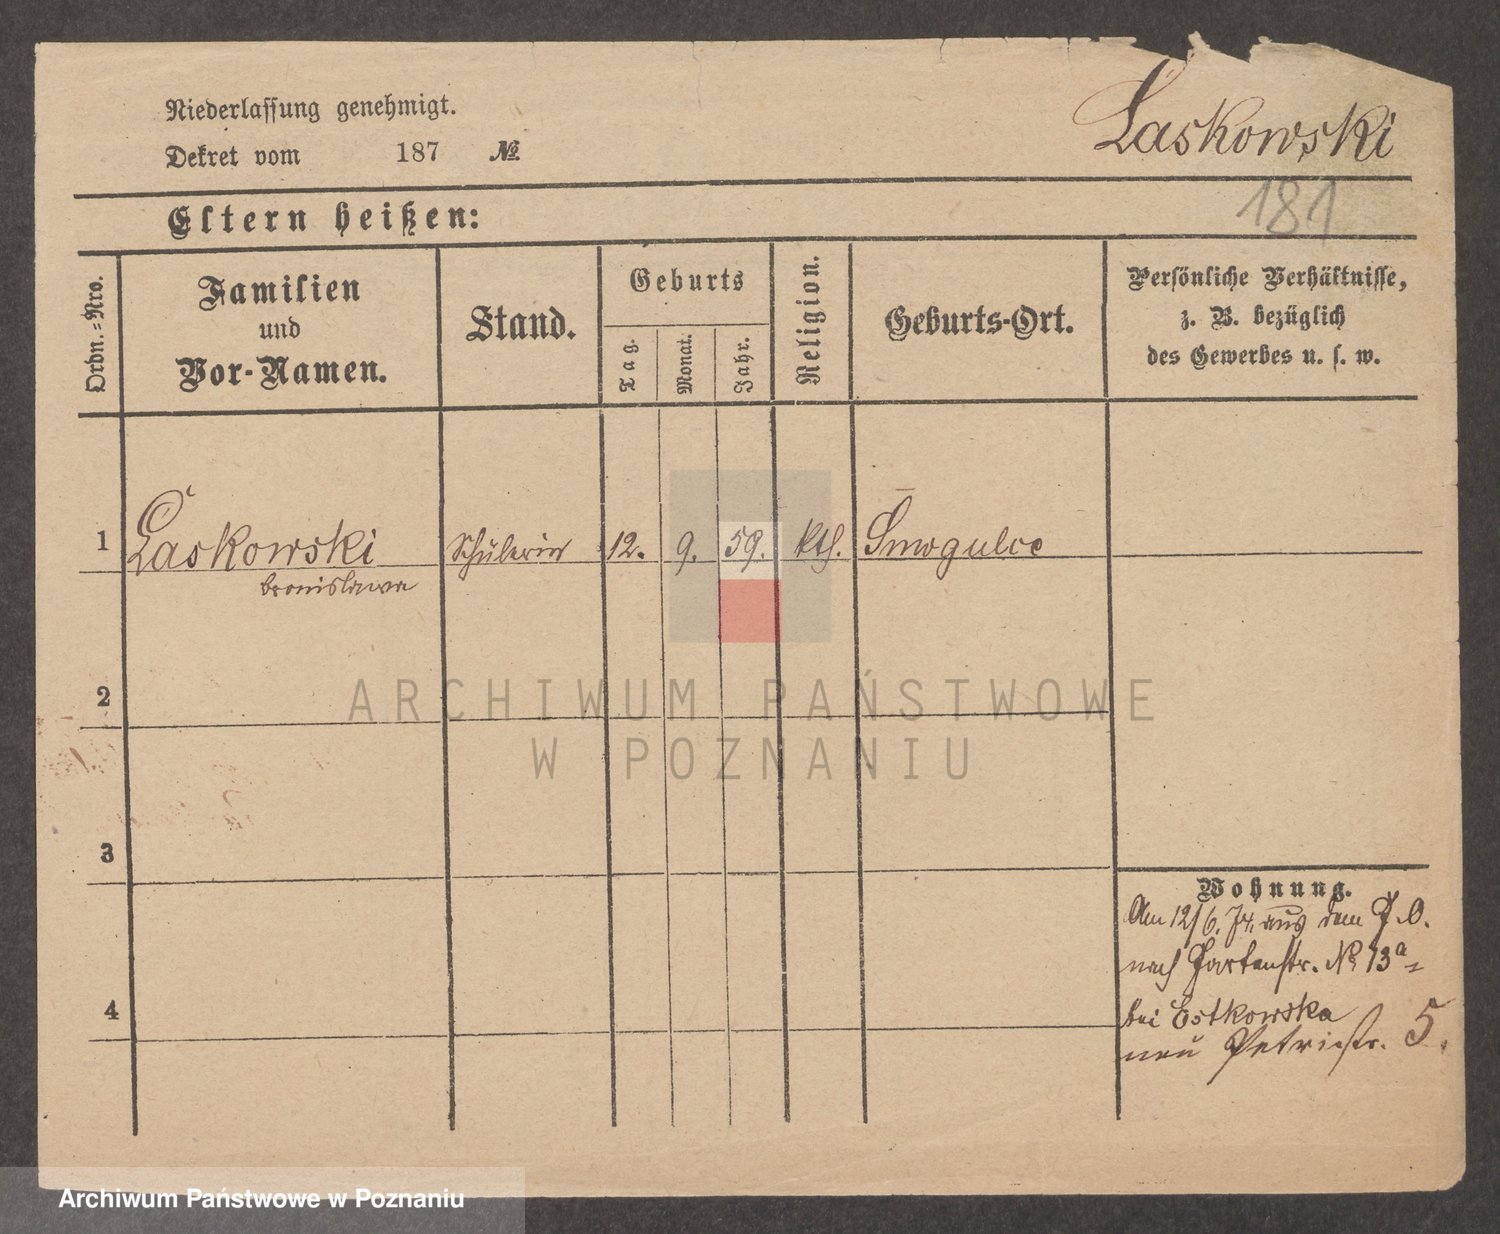 Niederlassung genehmigt.
Dekret vom 187 №
Laskowski
181
Eltern heißen:
Ordn.-Nro.
Familien und Vor-Namen.
Stand.
Geburts
Tag.
Monat.
Jahr.
Religion.
Geburts-Ort.
Persönliche Verhältnisse,
z. B. bezüglich
des Gewerbes u. s. w.
1 Laskowski Schülerin 12. 9. 59. kth. Smogulec
bronislawa
2
ARCHIWUM PAŃSTWOWE
W POZNANIU
3
Wohnung.
Am 12/6. 74. aus dem P. O.
nach Gartenstr. № 13a
4
bei Estkowska
neu Petristr. 5.
Archiwum Państwowe w Poznaniu